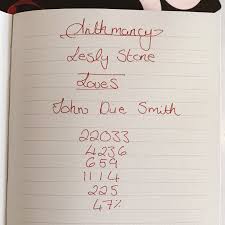 Arithmancy
Lesly Stone
Loves
John Due Smith
22033
4236
659
1114
225
47%